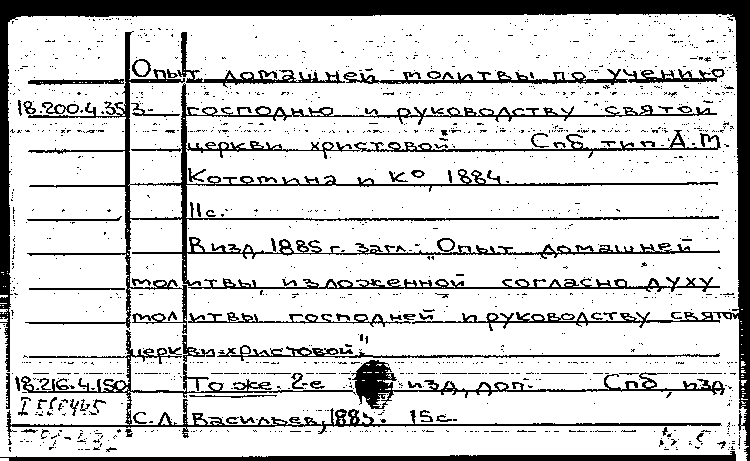 Опыт домашней молитвы по учению
18.200.4.353. господню и руководству святой
церкви христовой. Спб, тип. А.М.
Котомина и К°, 1884.
11с.
В изд. 1885 г. загл.: „Опыт домашней
молитвы, изложенной согласно духу
молитвы господней и руководству святой
церкви христовой."
18.216.4.150 То же. 2-е изд, доп. Спб, изд.
С.Л. Васильев, 1885. 15с.